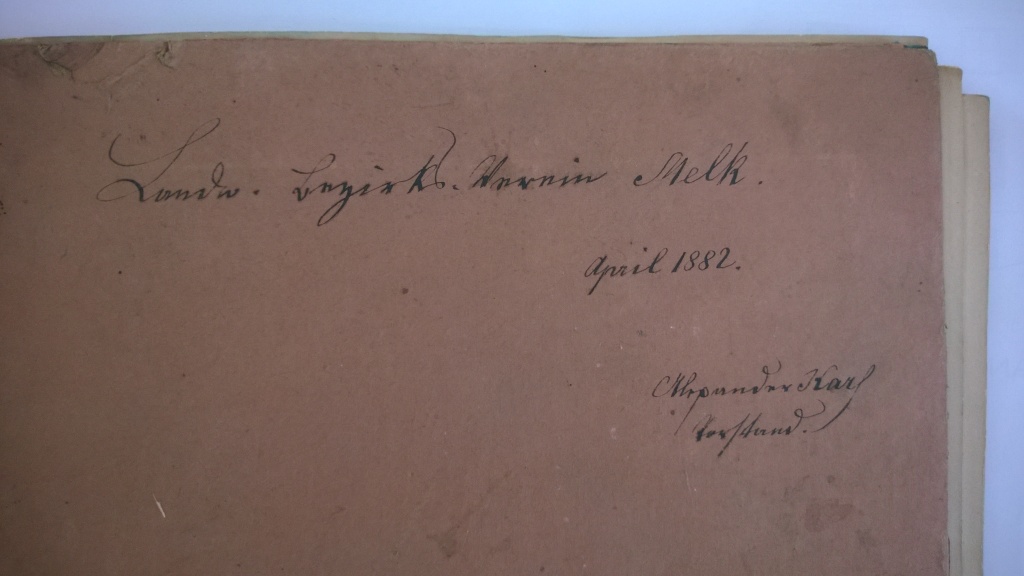 Landw. Bezirks-Verein Melk.
April 1882.
Alexander Karl
Vorstand.